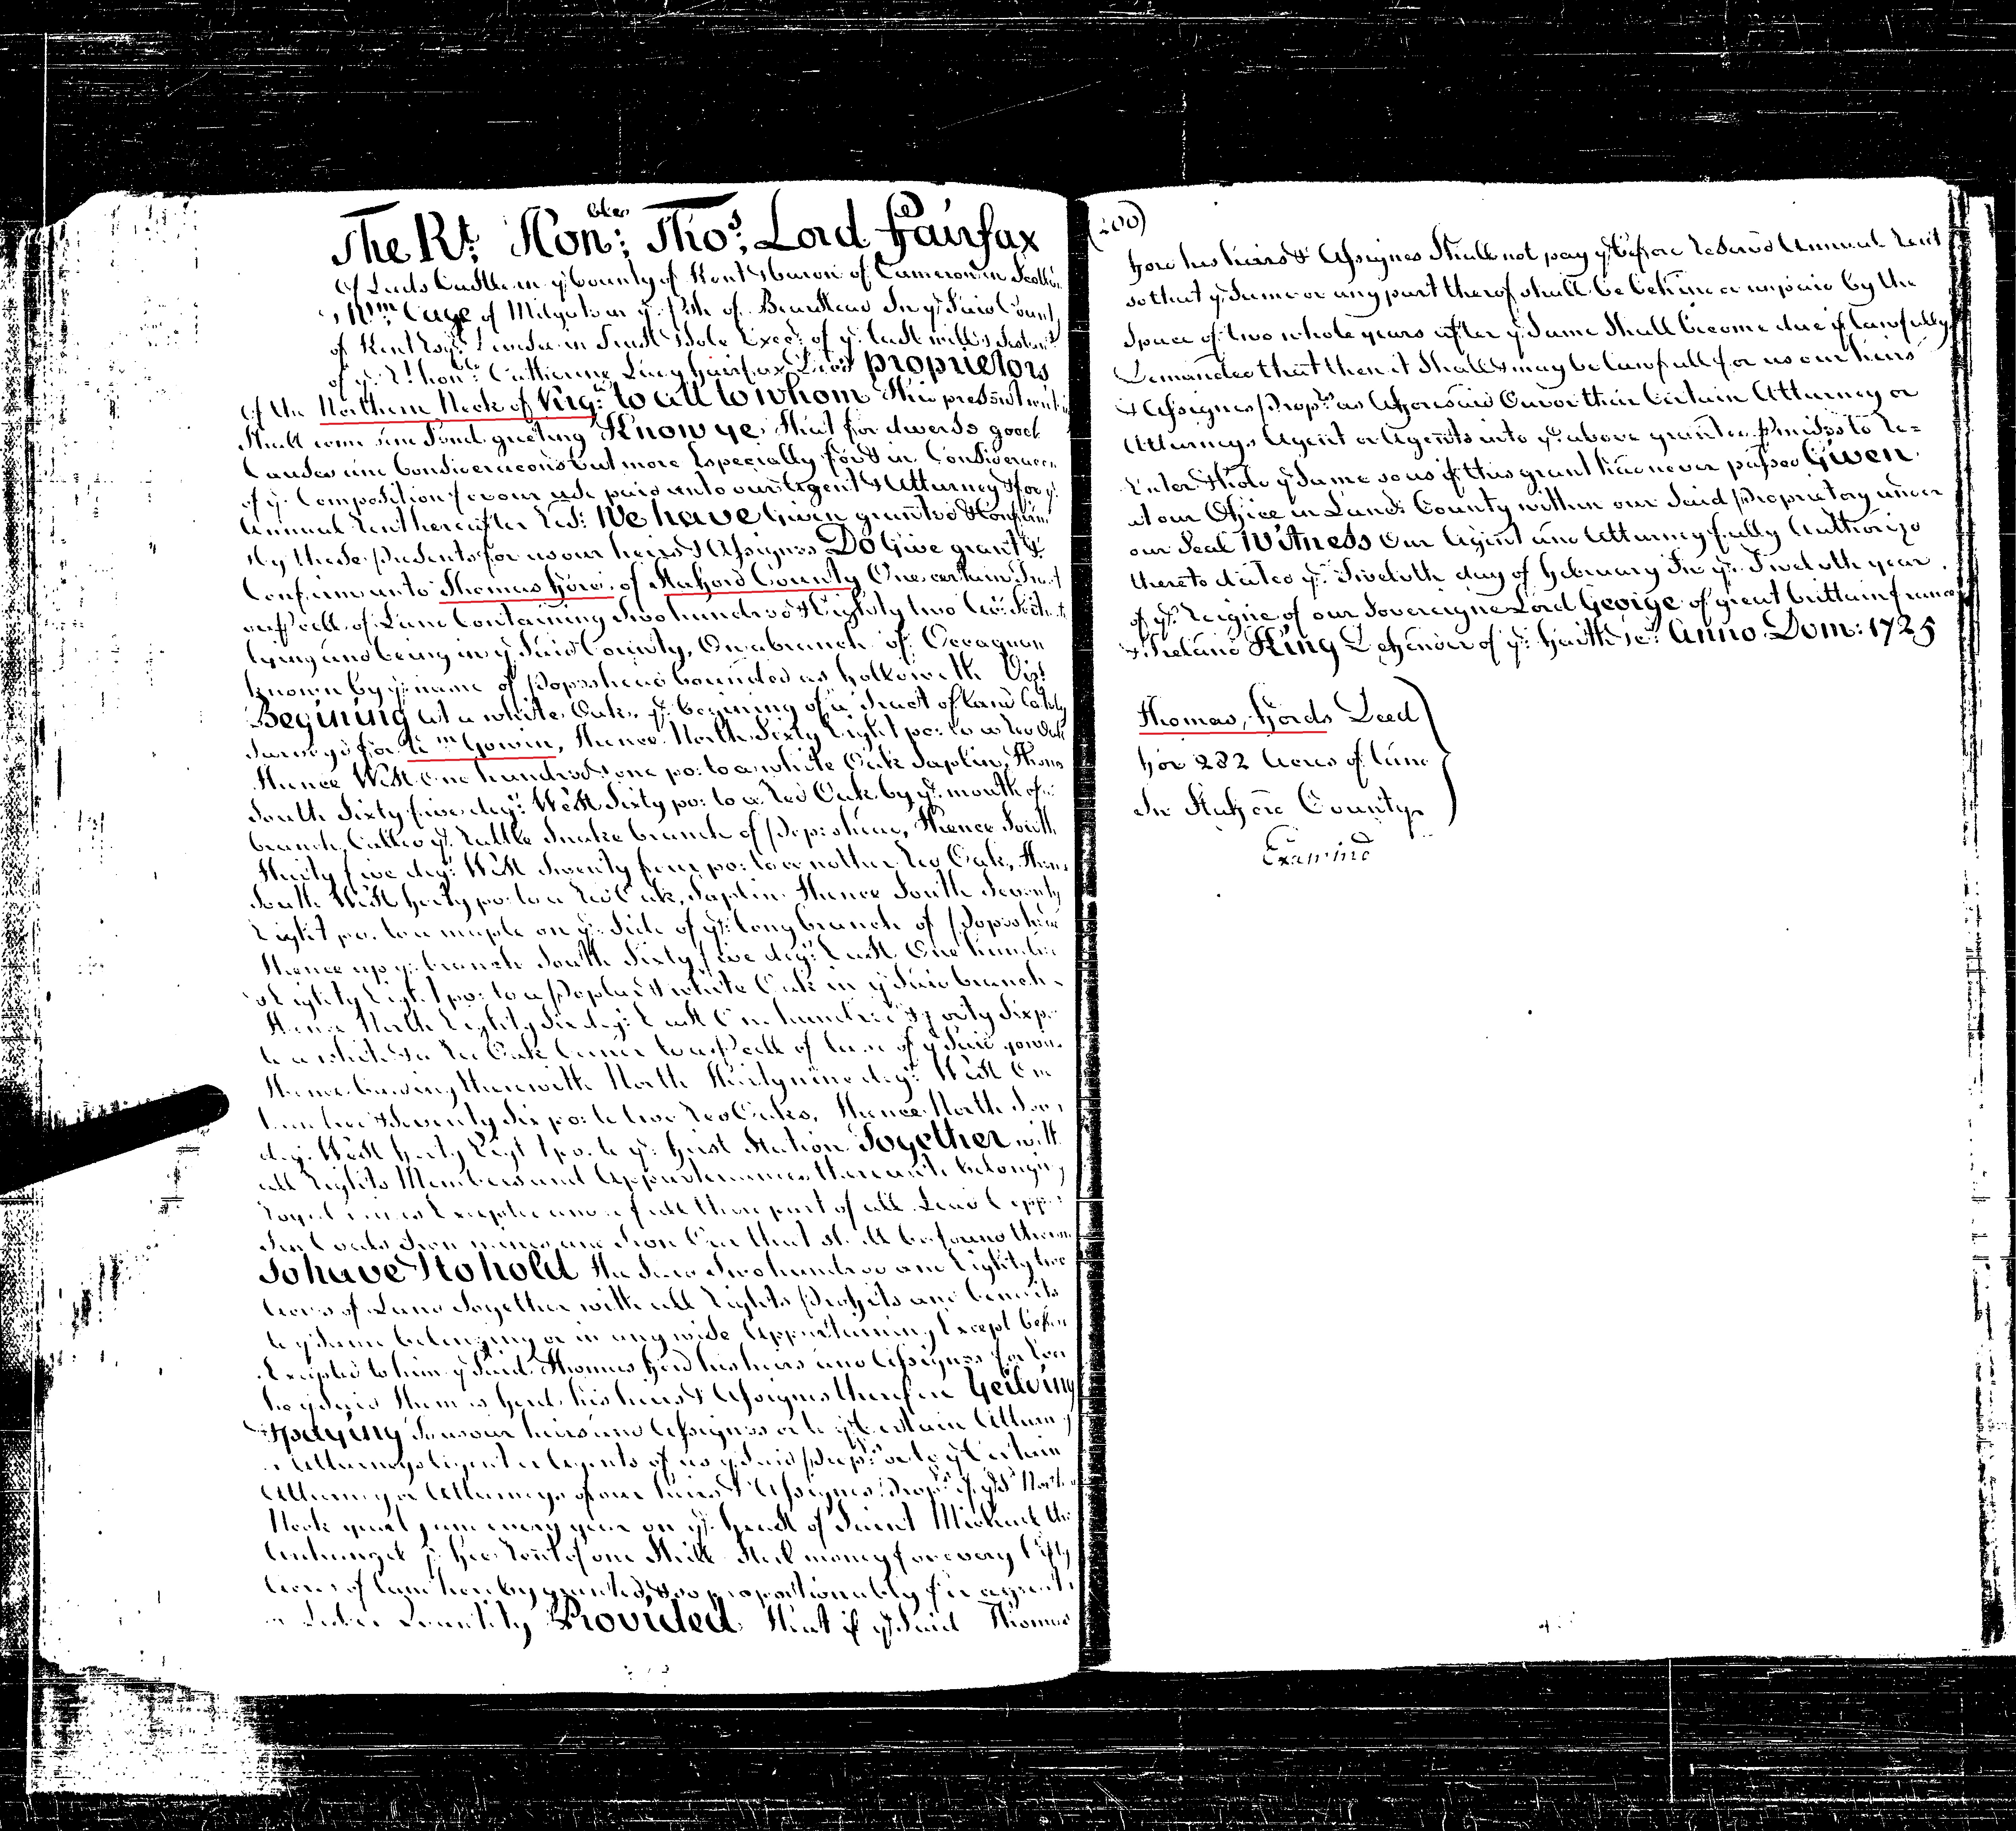 The Rt. Hon:ble Thos. Lord Fairfax
Of Leeds Castle in ye County of Kent & baron of Cameron in Scotl
& Wm Cage of Milgate in ye Psh of Bearstead In ye Said Count
of Kent Esqr. Devisee in Trust & Sole Execr. of ye last will & Testamt.
of ye Rt. honble. Catherine Lady Fairfax Decd proprietors
Of the Northern Neck of Virga. to all to whom this present
Shall come
Know ye That for divers good
Causes and Consideracons but more Especially for & in Consideracon
of ye Composition for our use paid unto our Agent & Attorney & for ye
Annual Rent hereafter Resd: We have Given granted & Confirm
by these presents for us our heirs & Assignes Do Give grant &
Confirm unto Thomas Ford of Stafford County One certain Tract
or Pcell of Land Containing Two hundred & Eighty two Acs. Scituate
lying and being in ye Said County, On a branch of Occaquan
known by ye name of Popeshead bounded as followeth Vizt
Begining at a white Oak, ye begining of a Tract of land lately
Surveyd for Wm Gowin, Thence North Sixty Eight po: to a Red Oak
Thence West One hundred & one po: to a white Oak Saplin, Thence
South Sixty five degs: West Sixty po: to a Red Oak by ye mouth of a
branch, Called ye Rattle Snake branch of Popeshead, Thence South
Thirty five degs: West Twenty four po: to another Red Oak, Thence
South West Forty po: to a Red Oak, Saplin Thence South Seventy
Eight po. to a maple on ye Side of ye long branch of Popeshead
Thence up ye branch South Sixty five degs: East One hundred
& Eighty Eight po: to a Poplar & white Oak in ye Said branch
Thence North Eighty Six degs: East One hundred & Forty Six po
to a white & a Red Oak Corner to a Pcell of land of ye Said gowin
Thence binding therewith North Thirty nine degs: West One
hundred & Seventy Six po: to two Red Oaks, Thence North
deg. West Forty Eight po. to ye First Station Together with
all Rights Members and Appurtenances thereunto belonging
Royal mines Excepted and a full third part of all Lead Copper
Tin Coals Iron mines and Iron Oar that shall be found thereon
To have & to hold the Said Two hundred and Eighty two
Acres of Land Together with all Rights Profits and benefits
to ye Same belonging or in any wise Appertaining Except before
Excepted to him ye Said Thomas Ford his heirs and Assignes for Ever
he ye Said Thomas Ford his heirs & Assignes therefore Yeilding
& paying To us our heirs and Assignes or to ye Certain Attorney
or Attorneys Agent or Agents of us ye Said Proprs: or to ye Certain
Attorney or Attorneys of our heirs & Assignes Proprs. of ye Sd North
Neck yearly and every year on ye Feast of Saint Michael the
Archangel ye Fee Rent of one Shill: Sterl money for every Fifty
Acres of land hereby granted, & so proportionably for a greater
or Lesser Quantity Provided That if ye Said Thomas
(200)
Ford his heirs & Assignes Shall not pay ye before reserved Annual Rent
so that ye Same or any part thereof shall be behind or unpaid by the
Space of two whole years after ye Same Shall become due if lawfully
Demanded that then it Shall & may be lawfull for us our heirs
& Assignes Proprs as Aforesaid Our or their Certain Attorney or
Attorneys Agent or Agents into ye above granted Pmisses to Re=
Enter & hold ye Same so as if this grant had never passed Given
at our Office in Lancr County within our Said Proprietory under
our Seal Witness Our Agent and Attorney fully Authorizd
thereto dated ye Twelvth day of February In ye Twelvth year
of ye Reigne of our Sovereigne Lord George of great brittain france
& Ireland King Defender of ye Faith &c: Anno Dom: 1725
Thomas, Fords Deed
For 282 Acres of land
In Stafford County
Examind